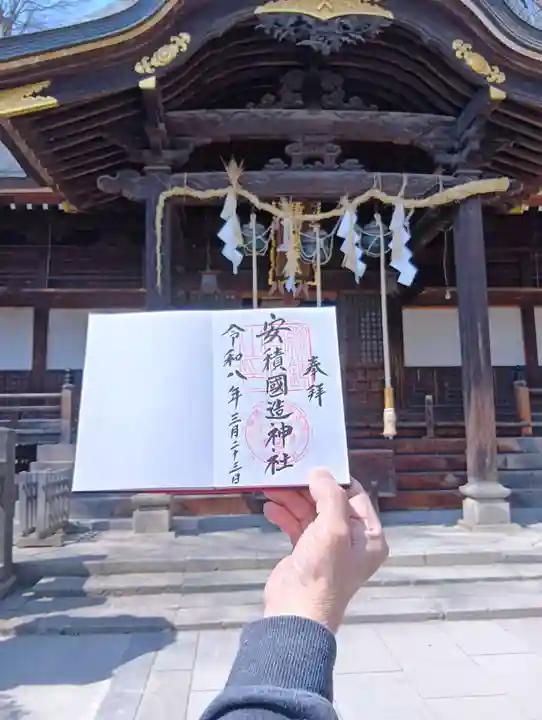 奉拝
安積國造神社
令和八年三月二十三日